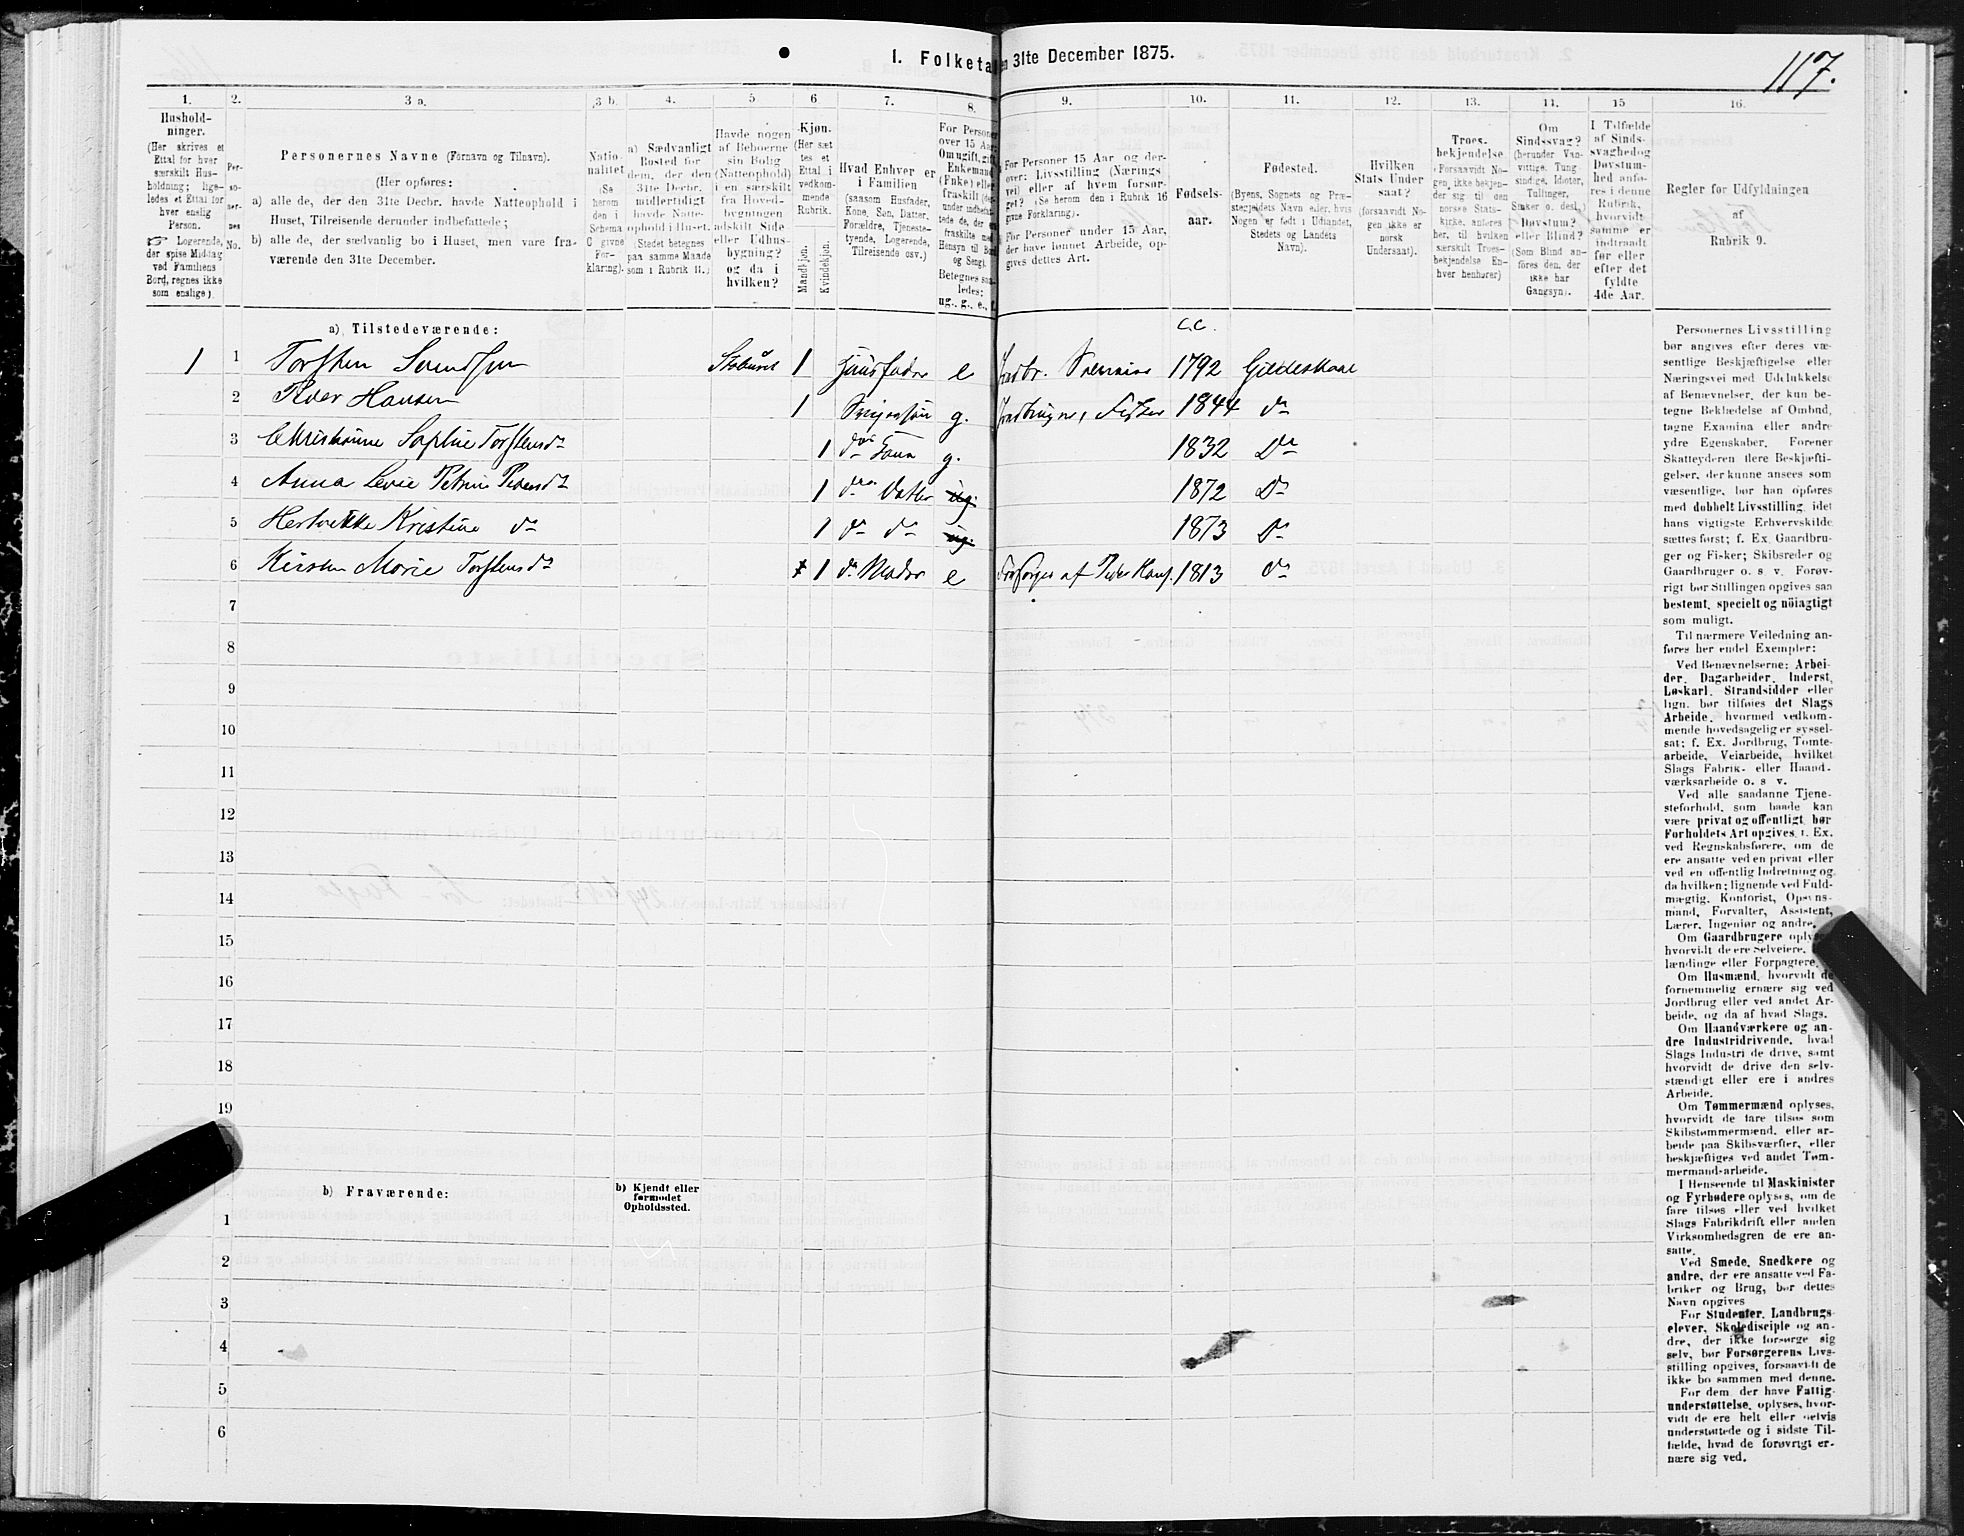 1. Folketa en 31te December 1875.
117.
1.
2.
3 a.
3 b.
4.
5
6
7.
8.
9.
10.
11.
12.
13.
14.
15
16.
Hushold-
ninger.
(Her skrives et
Ettal for hver
særskilt Hus-
holdning; lige-
ledes et Ettal for
hver enslig
Person.
☞ Logerende,
der spise Middag
ved Familiens
Bord, regnes ikke
som enslige).
Per-
so-
ner-
nes
No.
Personernes Navne (Fornavn og Tilnavn).
(Her opføres:
a) alle de, der den 31te Decbr. havde Natteophold i
Huset, Tilreisende derunder indbefattede;
b) alle de, der sædvanlig bo i Huset, men vare fra-
værende den 31te December.
Natio-
nalitet
(Se
herom
den i
Schema
C givne
For-
klaring).
a) Sædvanligt
Bosted for
dem, der den
31te Decbr.
midlertidigt
havde Natte-
ophold i Huset.
(Stedet betegnes
paa samme Maade
som i Rubrik 11.)
Havde nogen
af Beboerne
sin Bolig
(Natteophold)
i en særskilt
fra Hoved-
bygningen
adskilt Side-
eller Udhus-
bygning?
og da i
hvilken?
Kjøn.
(Her sæt
tes et
Ettal i
vedkom-
mende
Rubrik.
Mandkjøn.
Kvindekjøn.
Hvad Enhver er
i Familien
(saasom Husfader,
Kone, Søn, Datter,
Forældre, Tjeneste-
tyende, Logerende,
Tilreisende osv.)
For Personer
over 15 Aar:
Om ugift, gift,
Enkemand
(Enke) eller
fraskilt
Betegnes saa-
ledes:
ug., g., e., f.
For Personer 15 Aar og der-
over: Livsstilling (Nærings
vei) eller af hvem forsør-
get? (Se herom den i Rubrik 16
givne Forklaring).
For Personer under 15 Aar,
der have lønnet Arbeide, op-
gives dettes Art.
Fødsels-
aar.
Fødested.
(Byens, Sognets og Præ-
stegjeldets Navn eller, hvis
Nogen er født i Udlandet,
Stedets og Landets
Navn).
Hvilken
Stats Under
saat?
(forsaavidt No-
gen ikke er
norsk
Undersaat).
Troes-
bekjendelse
(Forsaavidt No-
gen, ikke bekjen-
der sig til den
norske Stats-
kirke, anføres
her, til hvilken
særskilt Troes-
bekjendelse En-
hver henhører)
Om
Sindssvag?
(herunder Van-
vittige, Tung-
sindige, Idioter,
Tullinger,
Sinker o. desl.)
Døvstum?
eller Blind?
(Som Blind an-
føres den, der
ikke har
Gangsyn).
I Tilfælde
af Sinds-
svaghed og
Døvstum-
hed anfø-
res i denne
Rubrik,
hvorvidt
samme er
indtraadt
før eller
efter det
fyldte
4de Aar.
Regler for Udfyldningen
af
Rubrik 9.
a) Tilstedeværende:
c.c.
1 1 Torsten Svendsen Stabuset 1 Huusfader e Jordbr. 1792 Gildeskaal
2 Peder Hansen 1 Svigersøn g. Jordbruger, Fisker 1844 do
3 Christianne Sophie Torstensdr 1 ds Kone g. 1832 Do
4 Anna Petrine Pedersdr 1 ds Datter ug. 1872 Do
5 Kristine do 1 do do ug. 1873 Do
6 Kirsten Marie Torstensdr 1 ds Moder e Forsørges af Peder Hans. 1813 do
7
8
9
10
11
12
13
14
15
16
17
18
19
b) Fraværende:
b) Kjendt eller
formodet
Opholdssted.
1
2
3
4
5
6
Personernes Livsstilling
bør angives efter deres væ-
sentlige Beskjæftigelse eller
Næringsvei med Udelukkelse
af Benævnelser, der kun be-
tegne Beklædelse af Ombud,
tagne Examina eller andre
ydre Egenskaber. Forener
Skatteyderen flere Beskjæfti-
gelser, der kunne ansees som
væsentlige, bør han opføres
med dobbelt Livsstilling, idet
hans vigtigste Erhvervskilde
sættes først; f. Ex. Gaardbru-
ger og Fisker; Skibsreder og
Gaardbruger o. s. v. Forøv-
rigt bør Stillingen opgives saa
bestemt, specielt og nöiagtigt
som muligt.
Til nærmere Veiledning an-
føres her endel Exempler:
Ved Benævnelserne: Arbei-
der, Dagarbeider, Inderst,
Løskarl, Strandsidder eller
lign. bør tilføies det Slags
Arbeide, hvormed vedkom-
mende hovedsagelig er syssel-
sat; f. Ex. Jordbrug, Tomte-
arbeide, Veiarbeide, hvilket
Slags Fabrik- eller Haand-
værksarbeide o. s. v.
Ved alle saadanne Tjene-
steforhold, som baade kan
være privat og offentligt, bør
Forholdets Art opgives, f. Ex.
ved Regnskabsførere, om de
ere ansatte ved en privat eller
ved en offentlig Indretning og
da hvilken; lignende ved Fuld-
mægtig, Kontorist, Opsyns-
mand, Forvalter, Assistent,
Lærer, Ingeniør og andre.
Om Gaardbrugere oplyses,
hvorvidt de ere Selveiere,
lændinge eller Forpagtere.
Om Husmænd, hvorvidt de
fornemmelig ernære sig ved
Jordbrug eller ved andet Ar-
beide, og da af hvad Slags.
Om Haandværkere og an-
dre Industridrivende, hvad
Slags Industri de drive, samt
hvorvidt de drive den selv-
stændigt eller ere i andres
Arbeide.
Om Tømmermænd oplyses,
hvorvidt de fare tilsøs som
Skibstømmermænd, eller ar-
beide paa Skibsværfter, eller
beskjæftiges ved andet Tøm-
mermand-arbeide.
I Henseende til Maskinister
og Fyrbødere oplyses, om de
fare tilsøs eller ved hvilket
Slags Fabrikdrift eller anden
Virksomhedsgren de ere an-
satte.
Ved Smede, Snedkere og
andre, der ere ansatte ved Fa-
briker og Brug, bør dettes
Navn opgives
For Studenter, Landbrugs-
elever, Skoledisciple og an-
dre, der ikke forsørge sig
selv, bør Forsørgerens Livs-
stilling opgives, forsaavidt de
ikke bo sammen med denne.
For dem, der have Fattig-
understøttelse, oplyses, hvor-
vidt de ere helt eller delvis
understøttede og i sidste Til-
fælde, hvad de forøvrigt er-
nære sig ved.